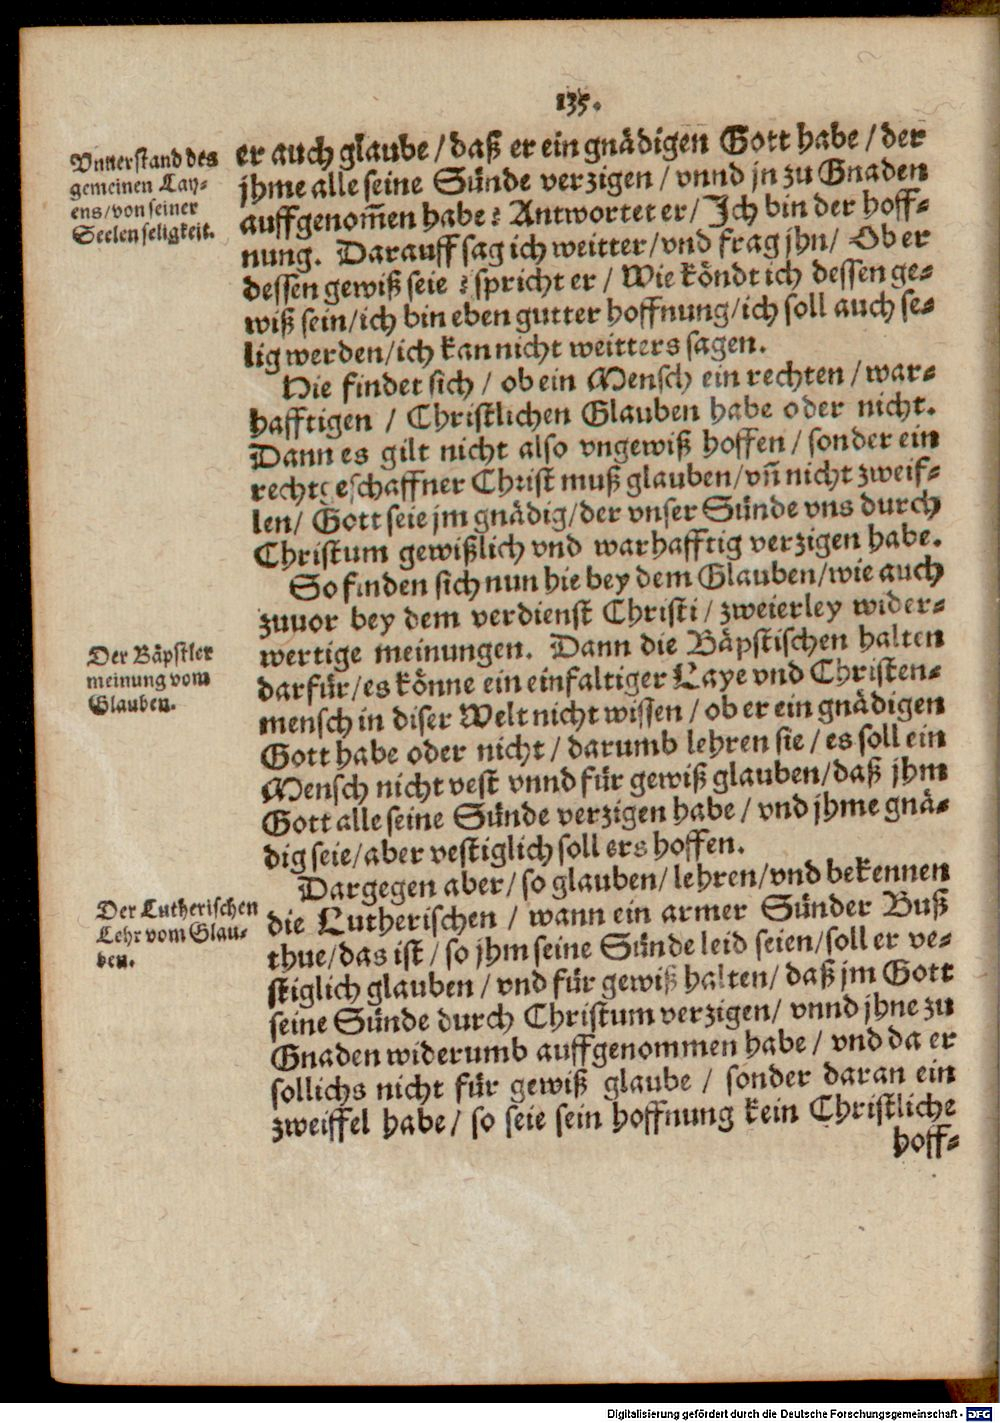 135.
Vnuerstand des
gemeinen Lay-
ens/von seiner
Seelen seligkeit.
er auch glaube/daß er ein gnädigen Gott habe/der
jhme alle seine Sünde verzigen/vnnd jn zu Gnaden
auffgenom̃en habe? Antwortet er/Ich bin der hoff-
nung. Darauff sag ich weitter/vnd frag jhn/ Ob er
dessen gewiß seie? spricht er/ Wie köndt ich dessen ge-
wiß sein/ich bin eben gutter hoffnung/ich soll auch se-
lig werden/ich kan nicht weitters sagen.
Hie findet sich/ ob ein Mensch ein rechten/war-
hafftigen / Christlichen Glauben habe oder nicht.
Dann es gilt nicht also vngewiß hoffen/ sonder ein
rechtgeschaffner Christ muß glauben/vñ nicht zweif-
len/ Gott seie jm gnädig/der vnser Sünde vns durch
Christum gewißlich vnd warhafftig verzigen habe.
So finden sich nun hie bey dem Glauben/wie auch
zuuor bey dem verdienst Christi/ zweierley wider-
Der Bäpstler
meinung vom
Glauben.
wertige meinungen. Dann die Bäpstischen halten
darfür/es könne ein einfaltiger Laye vnd Christen-
mensch in diser Welt nicht wissen/ ob er ein gnädigen
Gott habe oder nicht/ darumb lehren sie/ es soll ein
Mensch nicht vest vnnd für gewiß glauben/daß jhm
Gott alle seine Sünde verzigen habe/ vnd jhme gnä-
dig seie/aber vestiglich soll ers hoffen.
Dargegen aber/ so glauben/ lehren/vnd bekennen
Der Lutherischen
Lehr vom Glau-
ben.
die Lutherischen / wann ein armer Sünder Buß
thue/das ist/ so jhm seine Sünde leid seien/soll er ve-
stiglich glauben/ vnd für gewiß halten/ daß jm Gott
seine Sünde durch Christum verzigen/ vnnd jhne zu
Gnaden widerumb auffgenommen habe/ vnd da er
sollichs nicht für gewiß glaube / sonder daran ein
zweiffel habe/ so seie sein hoffnung kein Christliche
hoff-
Digitalisierung gefördert durch die Deutsche Forschungsgemeinschaft - DFG